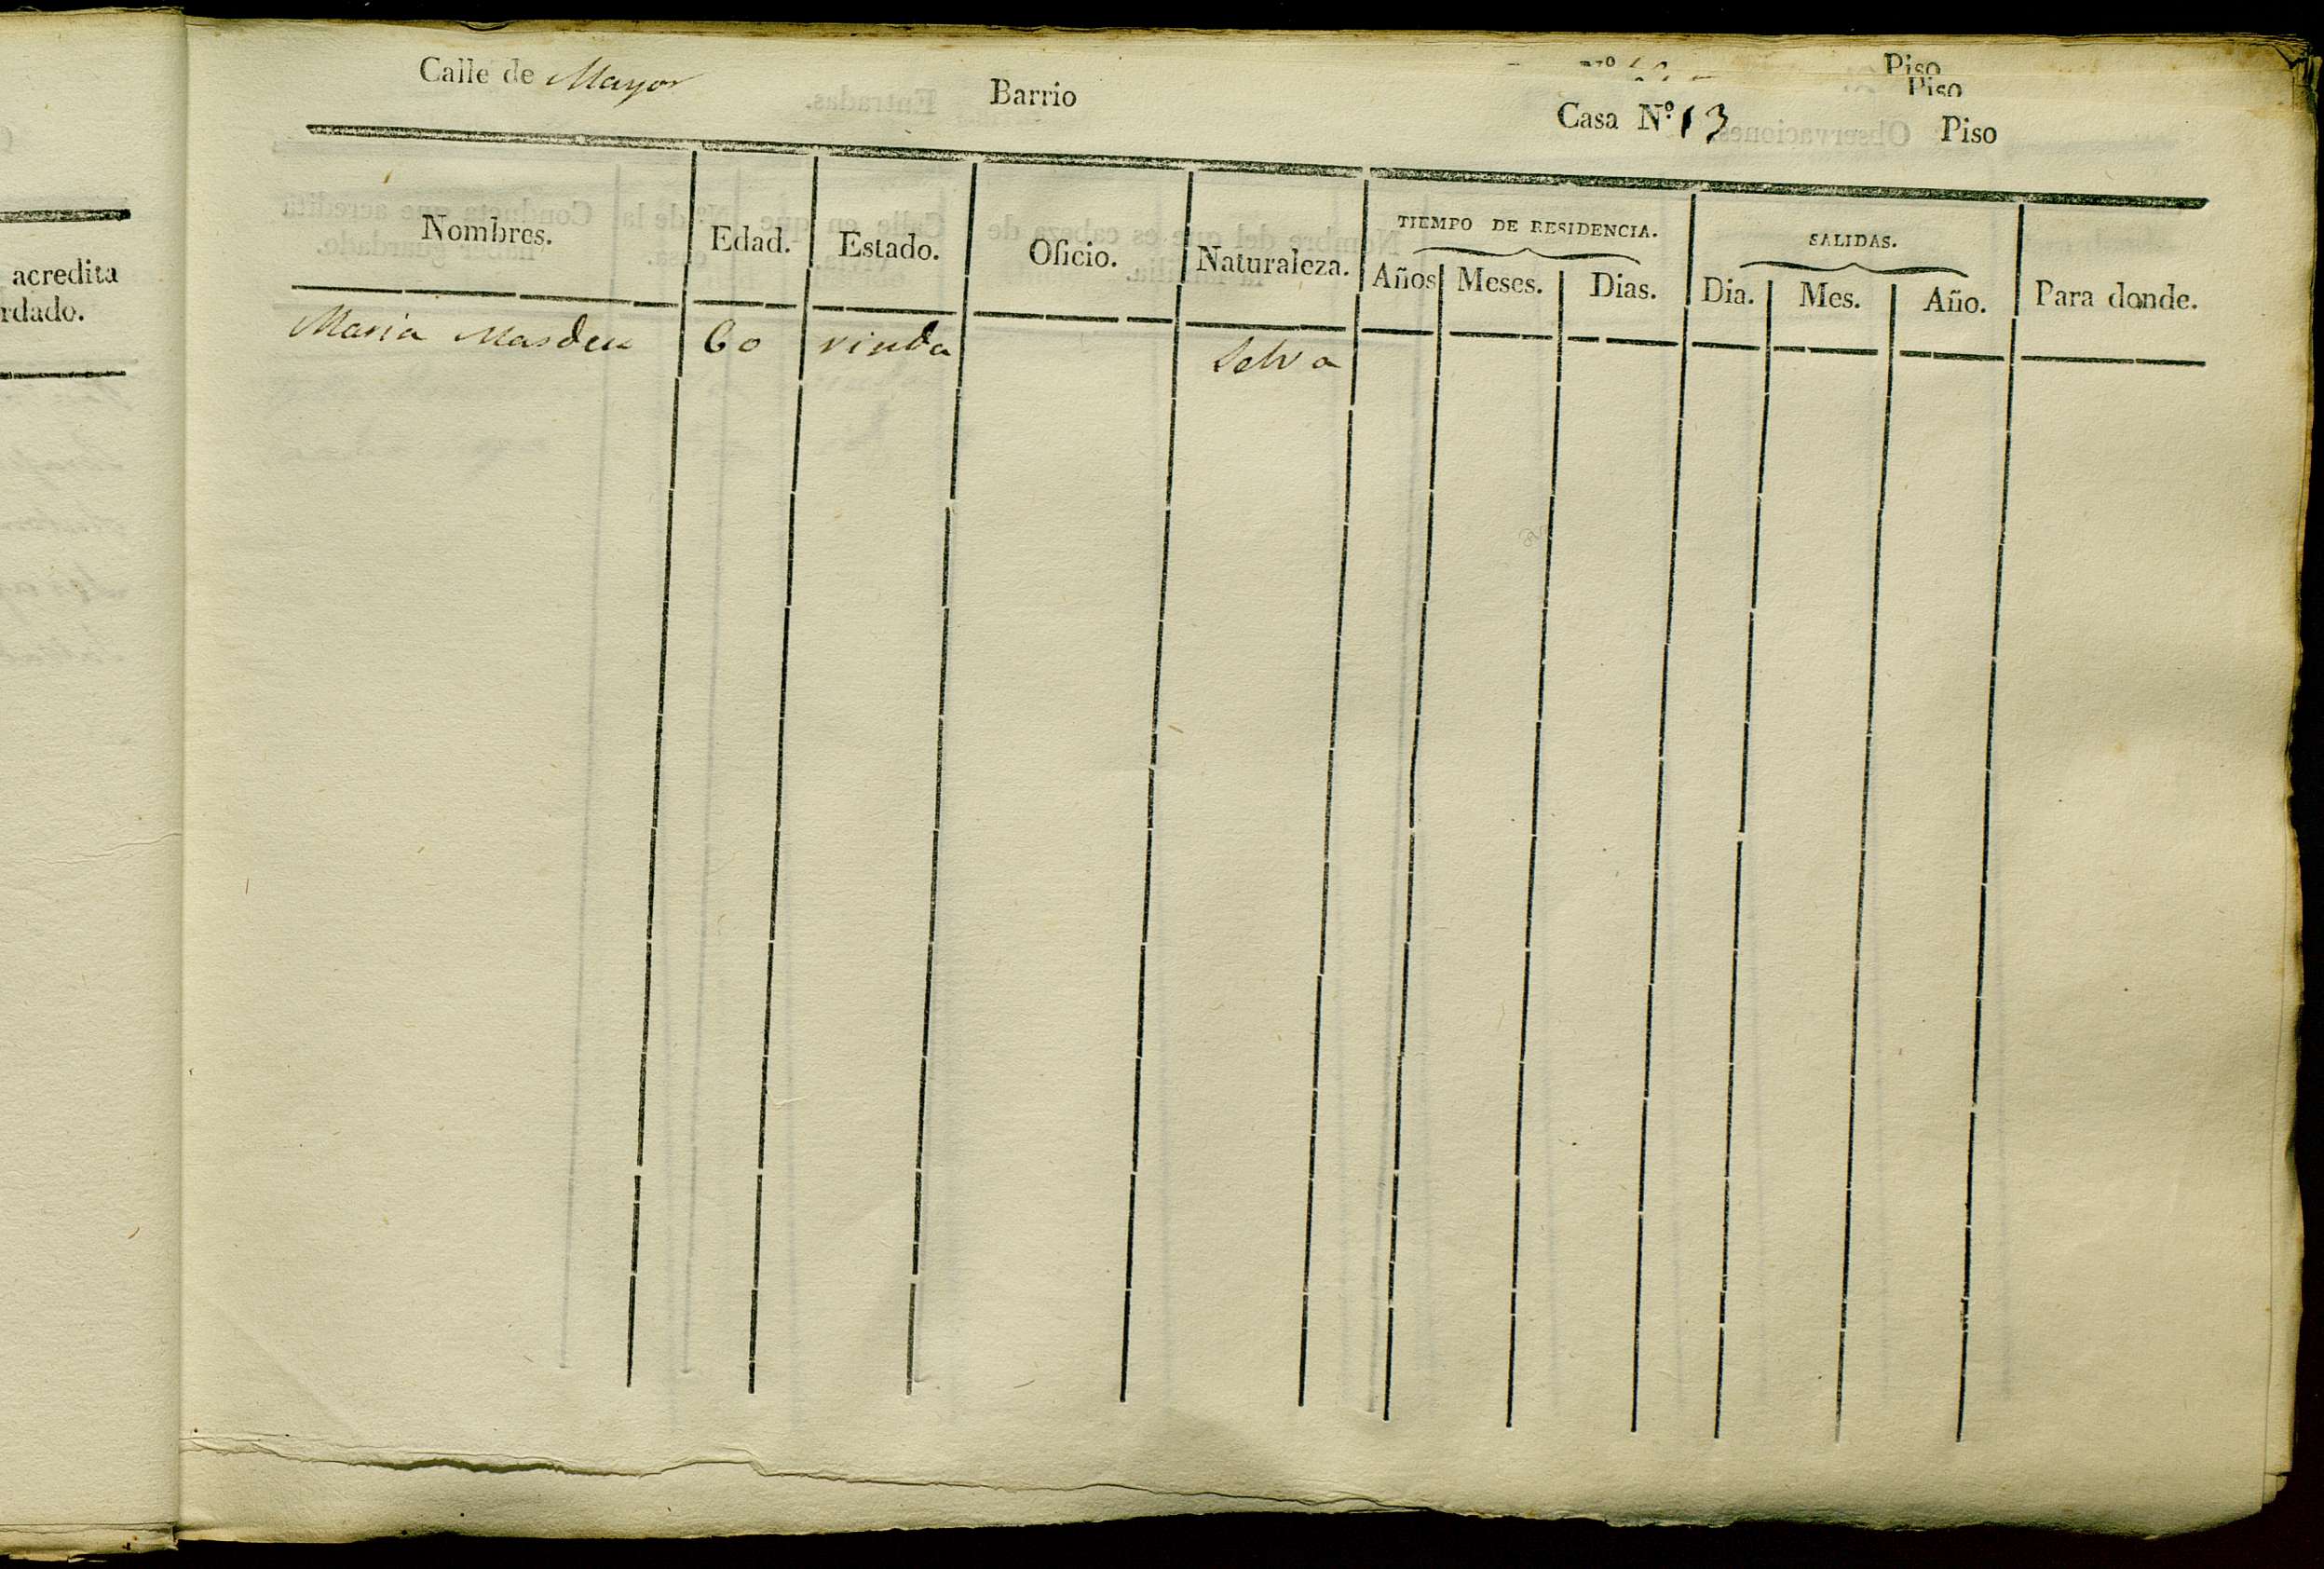 Piso
Piso
Calle de Mayor Barrio Casa Nº 13 Piso
Nombres. Edad. Estado. Oficio. Naturaleza. TIEMPO DE RESIDENCIA. SALIDAS. Para donde.
Años Meses. Dias. Dia. Mes. Año.
Maria Masdeu 60 viuda Selva
acredita
rdado.